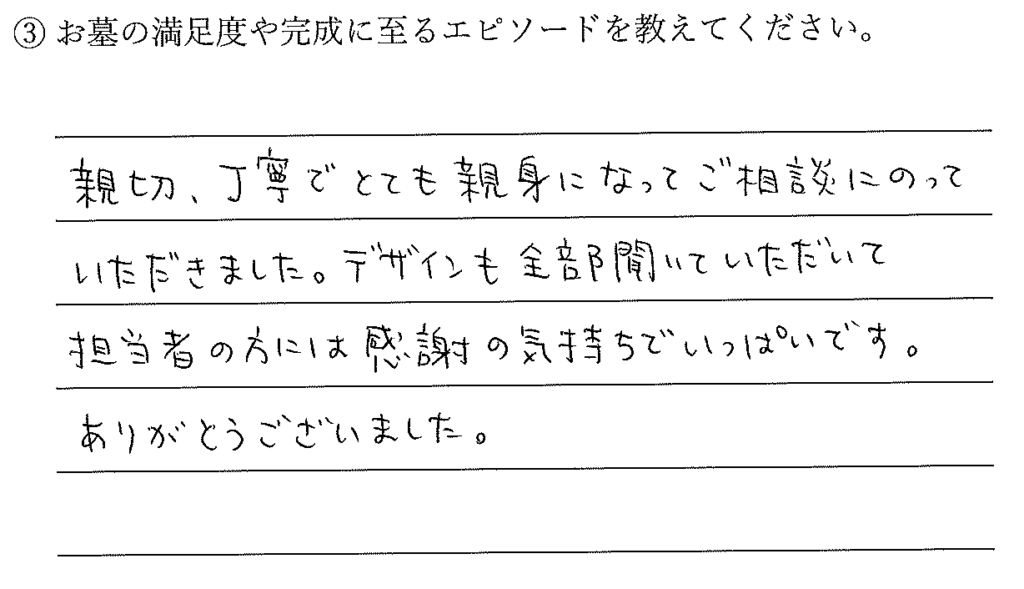 ③ お墓の満足度や完成に至るエピソードを教えてください。
親切、丁寧でとても親身になってご相談にのって
いただきました。デザインも全部聞いていただいて
担当者の方には感謝の気持ちでいっぱいです。
ありがとうございました。